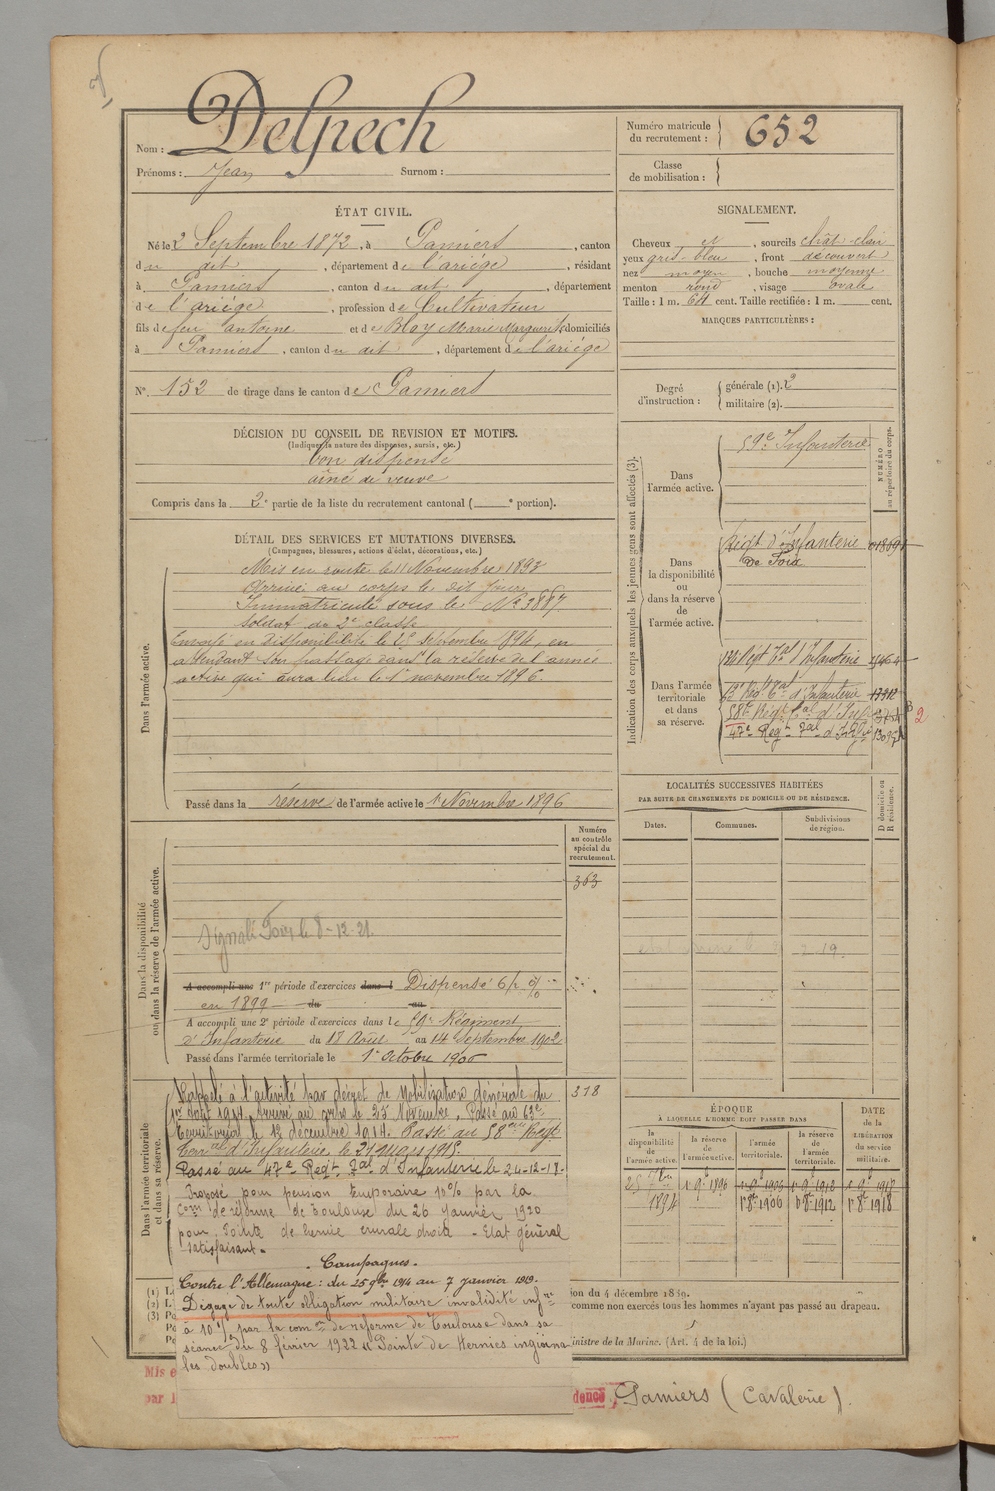 Nom : Delpech
Prénoms : Jean Surnom :
Numéro matricule du recrutement : 652
Classe de mobilisation :
ÉTAT CIVIL.
Né le 2 Septembre 1872, à Pamiers, canton
du dit, département de l'ariége, résidant
à Pamiers, canton du dit, département
de l'ariége, profession de Cultivateur
fils de feu antoine et de Blay Marie Marguerite domiciliés
à Pamiers, canton du dit, département de l'ariége
N° 152 de tirage dans le canton de Pamiers
DÉCISION DU CONSEIL DE REVISION ET MOTIFS.
(Indiquer la nature des dispenses, sursis, etc.)
bon dispensé
aîné de veuve
Compris dans la 2e partie de la liste du recrutement cantonal ( e portion).
DÉTAIL DES SERVICES ET MUTATIONS DIVERSES.
(Campagnes, blessures, actions d'éclat, décorations, etc.)
Dans l'armée active.
Mis en route le 11 Novembre 1893
Arrivé au corps le dit jour
Immatriculé sous le N° 3887
soldat de 2e classe
Envoyé en disponibilité le 25 septembre 1894, en
attendant son passage dans la réserve de l'armée
active qui aura lieu le 1er novembre 1896.
Passé dans la réserve de l'armée active le 1er Novembre 1896
Dans la disponibilité
ou dans la réserve de l'armée active.
Numéro
au contrôle
spécial du
recrutement.
363
Signalé Foix le 8-12-21.
A accompli une 1re période d'exercices dans l Dispensé 6/2 %
en 1899 du au
A accompli une 2e période d'exercices dans le 59e Régiment
d'Infanterie du 18 Août au 14 Septembre 1902
Passé dans l'armée territoriale le 1er Octobre 1906
Dans l'armée territoriale
et dans sa réserve.
318
Rappelé à l'activité par décret de Mobilisation générale du
1er Août 1914. Arrivé au corps le 25 Novembre. Passé au 63e
Territorial le 12 décembre 1914. Passé au 58eme Regt
Terral d'Infanterie le 21 1915.
Passé au 47e Regt Tal d'Infanterie le 24-12-18-
Proposé pour pension temporaire 10% par la
Comon de réforme de Toulouse du 26 Janvier 1920
pour Pointe de hernie crurale droite - Etat général
satisfaisant.
- Campagnes. -
Contre l'Allemagne : du 25 9bre 1914 au 7 janvier 1919.
Dégagé de toute obligation militaire, invalidité infre
à 10% par la comon de réforme de Toulouse dans sa
séance du 8 février 1922 « Pointe de Hernies inguina
les doubles »
SIGNALEMENT.
Cheveux et, sourcils chât-clair
yeux gris-bleu, front découvert
nez moyen, bouche moyenne
menton rond, visage ovale
Taille : 1 m. 64 cent. Taille rectifiée : 1 m. cent.
MARQUES PARTICULIÈRES :
Degré d'instruction : générale (1). 2
militaire (2).
Indication des corps auxquels les jeunes gens sont affectés (3).
NUMÉRO
au répertoire du corps.
Dans
l'armée active.
59e Infanterie
Dans
la disponibilité
ou
dans la réserve
de
l'armée active.
Régt d'Infanterie
de Foix
Dans l'armée
territoriale
et dans
sa réserve.
134 Regt Tal d'Infanterie
63e Regt Tal d'Infanterie
58e Regt Tal d'Infie
47e Regt Tal d'Infie
2
LOCALITÉS SUCCESSIVES HABITÉES
PAR SUITE DE CHANGEMENTS DE DOMICILE OU DE RÉSIDENCE.
Dates.
Communes.
Subdivisions
de région.
D domicile ou
R résidence.
ÉPOQUE
À LAQUELLE L'HOMME DOIT PASSER DANS
la disponibilité de l'armée active.
la réserve de l'armée active.
l'armée territoriale.
la réserve de l'armée territoriale.
DATE de la LIBÉRATION du service militaire.
25 7bre 1894
1er 9e 1896
1er 9e 1906 1er 9e 1912 1er 9e 1917
1er 8e 1906 1er 8e 1912 1er 8e 1918
(1) L
(2) L
(3) Po
ion du 4 décembre 1889.
comme non exercés tous les hommes n'ayant pas passé au drapeau.
inistre de la Marine. (Art. 4 de la loi.)
Mis e
par l
dence Pamiers (Cavalerie).